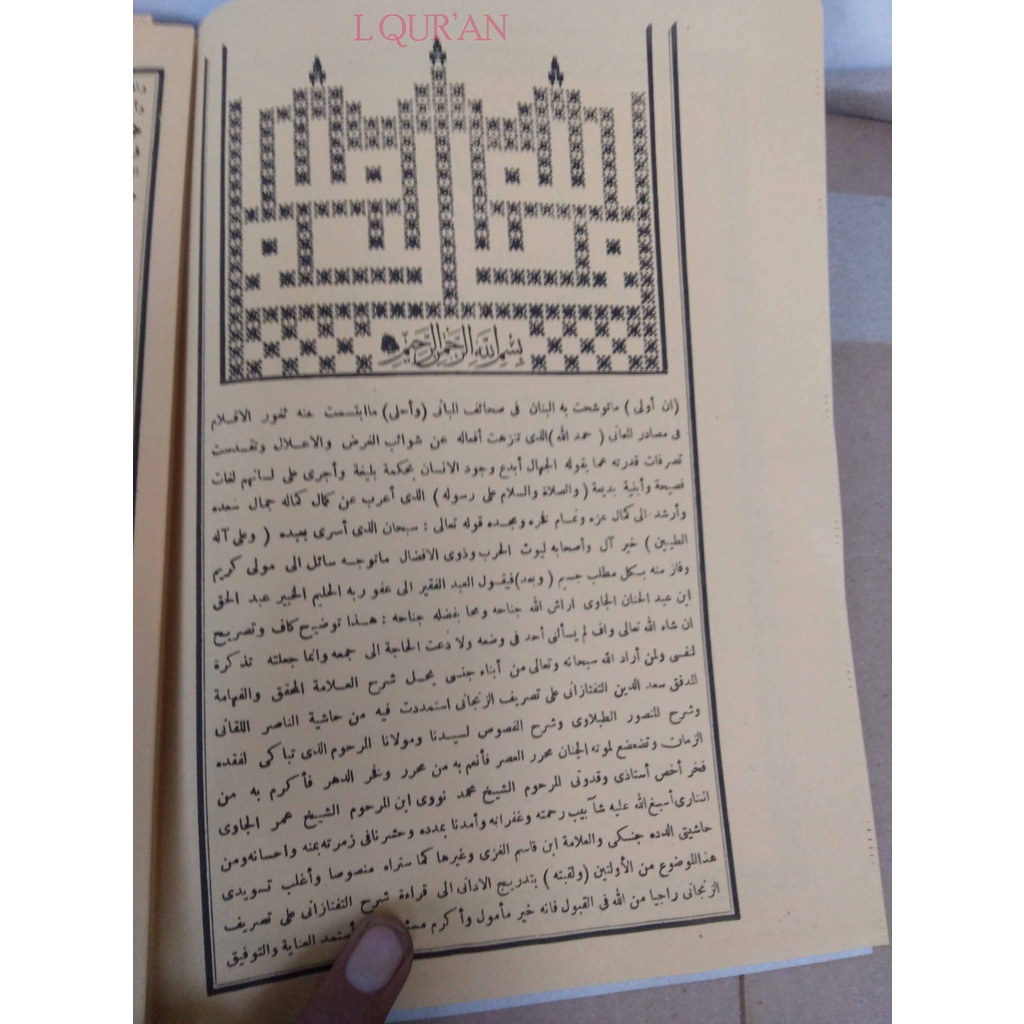 L QUR'AN
بسم الله الرحمن الرحيم
(ان أولى) ماتوشحت به البنان فى صحائف المبانى (وأحلى) ماابتسمت عنه ثغور الاقلام
فى مصادر المعانى (حمد الله) الذى تنزهت أفعاله عن شوائب الغرض والاعلال وتقدست
تصرفات قدرته عما يقوله الجهال أبدع وجود الانسان بحكمة بليغة وأجرى على لسانهم لغات
فصيحة وأبنية بديعة (والصلاة والسلام على رسوله) الذى أعرب عن كمال كماله جمال سعده
وأرشد الى كمال عزه وتمام فخره ومجده قوله تعالى : سبحان الذى أسرى بعبده (وعلى آله
الطيبين) خير آل وأصحابه ليوث الحرب وذوى الافضال ماتوجه سائل الى مولى كريم
وفاز منه بكل مطلب جسيم (وبعد) فيقول العبد الفقير الى عفو ربه الحليم الخبير عبد الحق
ابن عبد الحنان الجاوى اراش الله جناحه ومحا بفضله جناحه : هذا توضيح كاف وتصريح
ان شاء الله تعالى واف لم يسألنى أحد فى وضعه ولا دعت الحاجة الى جمعه وانما جعلته تذكرة
لنفسى ولمن أراد الله سبحانه وتعالى من أبناء جنسى بحل شرح العلامة المحقق والفهامة
المدقق سعد الدين التفتازانى على تصريف الزنجانى استمددت فيه من حاشية الناصر اللقانى
وشرح المنصور الطبلاوى وشرح الفصوص لسيدنا ومولانا المرحوم الذى تباكى لفقده
الزمان وتضعضع لموته الجنان محرر العصر فأنعم به من محرر وفخر الدهر فأكرم به من
فخر أخص أستاذى وقدوتى المرحوم الشيخ محمد نووى ابن المرحوم الشيخ عمر الجاوى
التنارى أسبغ الله عليه شآبيب رحمته وغفرانه وأمدنا بمدده وحشرنا فى زمرته بمنه واحسانه ومن
حاشيتى الدده جنكى والعلامة ابن قاسم الغزى وغيرها كما ستراه منصوصا وأغلب تسويدى
هذا الموضوع من الأولتين (ولقبته) بتدريج الادانى الى قراءة شرح التفتازانى على تصريف
الزنجانى راجيا من الله فى القبول فانه خير مأمول وأكرم أستمد العناية والتوفيق